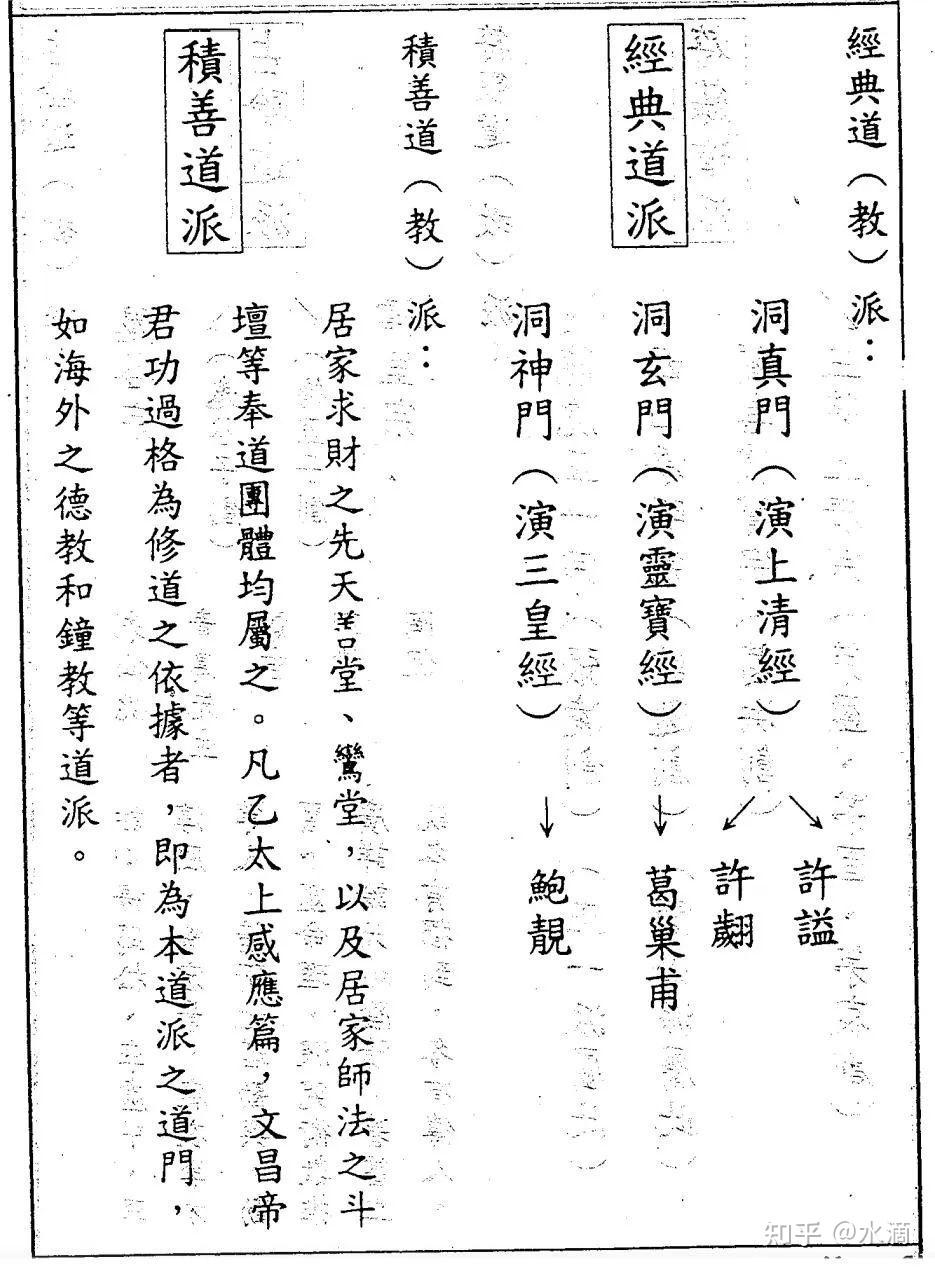 經典道（教）派：
洞真門（演上清經）
許謐
許翽
經典道派
洞玄門（演靈寶經）
葛巢甫
洞神門（演三皇經）
鮑靚
積善道（教）派：
積善道派
居家求財之先天善堂、鸞堂，以及居家師法之斗
壇等奉道團體均屬之。凡乙太上感應篇，文昌帝
君功過格為修道之依據者，即為本道派之道門，
如海外之德教和鐘教等道派。
知乎 @水滴